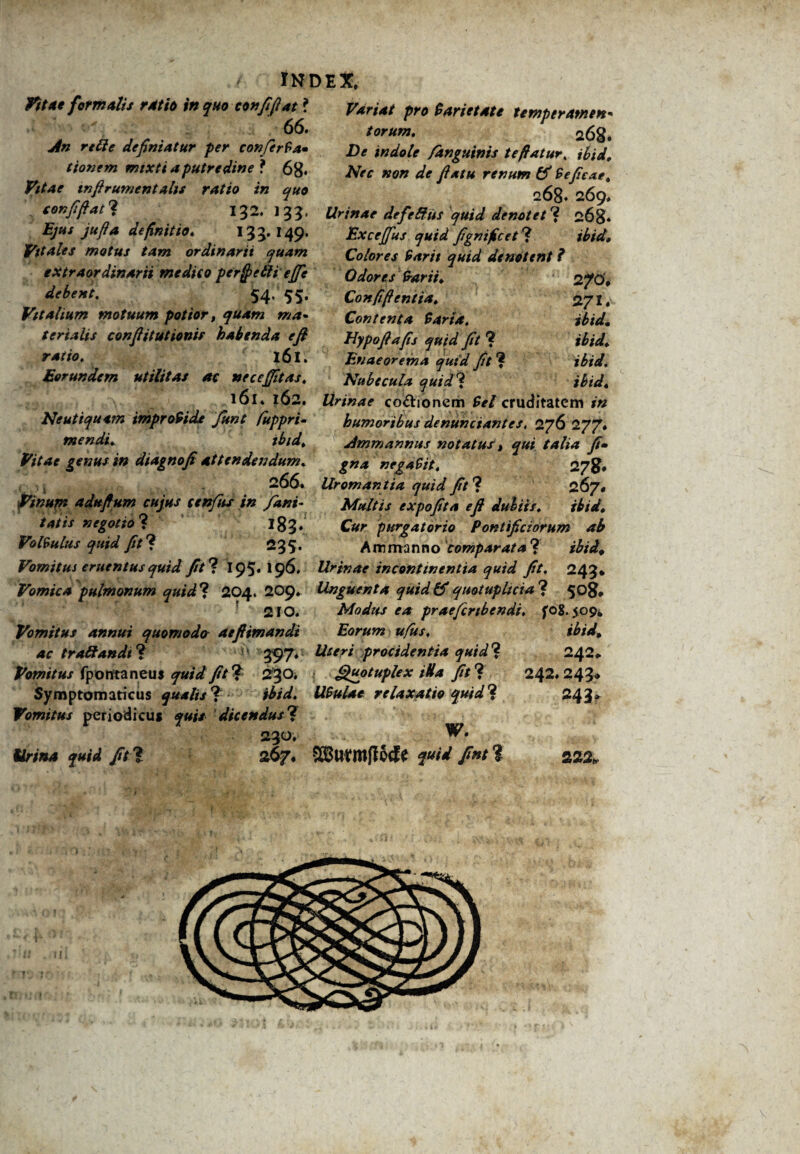 INDEX.
Vitae formalis ratio in quo consistat?
66.
An recte definiatur per conserva-
tionem mixti a putredine? 68.
Vitae instrumentalis ratio in quo
consistat? 132. 133.
Ejus justa definitio. 133. 149.
Vitales motus tam ordinarii quam
extraordinarii medico perspecti esse
debent. 54. 55.
Vitalium motuum potior, quam ma-
terialis constitutionis habenda est
ratio. 161.
Eorundem utilitas ac necessitas.
161. 162.
Neutiquam improvide sunt suppri-
mendi. ibid.
Vitae genus in diagnosi attendendum.
266.
Vinum adustum cujus census in sani-
tatis negotio? 183.
Volvulus quid sit? 235.
Vomitus cruentus quid sit? 195. 196.
Vomica pulmonum quid? 204. 209.
210.
Vomitus annui quomodo aestimandi
ac tractandi? 397.
Vomitus spontaneus quid sit? 230.
Symptomaticus qualis? ibid.
Vomitus periodicus quis dicendus?
230.
Urina quid sit? 267.
Variat pro varietate temperamen-
torum. 268.
De indole sanguinis testatur. ibid.
Nec non de statu renum & vesicae.
268. 269.
Urinae defectus quid denotet? 268.
Excessus quid significet? ibid.
Colores varii quid denotent?
Odores varii. 270.
Consistentia. 271.
Contenta varia. ibid.
Hypostasis quid sit? ibid.
Enaeorema quid sit? ibid.
Nubecula quid? ibid.
Urinae coctionem vel cruditatem in
humoribus denunciantes. 276 277.
Ammannus notatus, qui talia si-
gna negavit. 278.
Uromantia quid sit? 267.
Multis exposita est dubiis. ibid.
Cur purgatorio Pontificiorum ab
Ammanno comparata? ibid.
Urinae incontinentia quid sit. 243.
Unguenta quid & quotuplicia? 508.
Modus ea praescribendi. 508. 509.
Eorum usus. ibid.
Uteri procidentia quid? 242.
Quotuplex illa sit? 242. 243.
Uvulae relaxatio quid? 243.
W.
Wurmstöcke quid sint? 222.